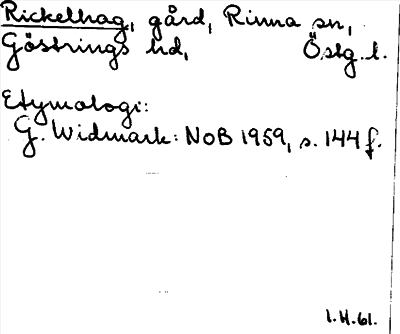 Rickelhag, gård, Rinna sn,
Göstrings hd, Östg. l.
Etymologi:
G. Widmark: NoB 1959, s. 144 f.
1.H.61.